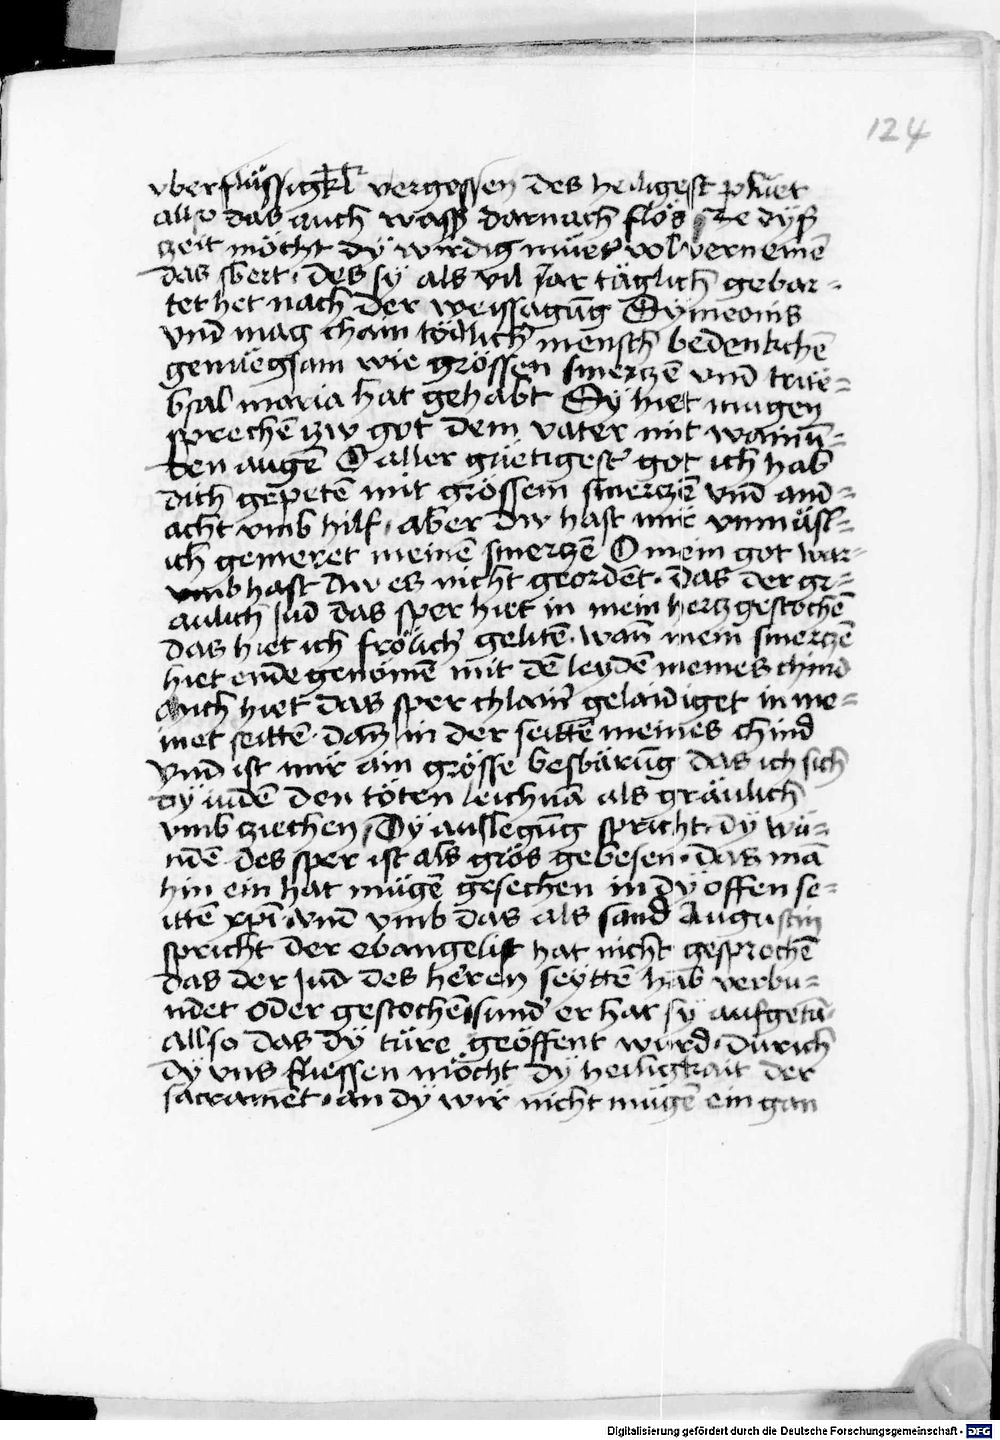 124
vberflüssigkt vergossen des heiligest pluet
allso das auch wasser darnach flos Ze dyser
zeit möcht dy wirdig mueter vol vernemen̄
das swert · des sy als vil Jar täglich gebar-
tet het nach der weyssagūg Symeonis
vnd mag chain tödlich mensch bedenkchen̄
genuegsam wie grössen smerczē vnd trüe-
bsal maria hat gehabt Sy hiet mugen
sprechē czw got dem vater mit wainū-
den augē O aller güetigest got ich hab
dich gepetē mit grössem smerczē vnd and-
acht vmb hilf, aber dw hast mir vnmäsl-
ich gemeret meinē smerczē O mein got war-
vmb hast dw es nicht geordēt · das der gr-
aulich Jud das sper hiet in mein hercz gestochē
das hiet ich frölich gelitē · wan̄ mein smerczē
hiet ende genōmē mit dē leydē meines chind
auch hiet das sper chlain gelaidiget in me-
iner seittē · dan̄ in der seittē meines chind
vnd ist mir ain grösse beswärūg das ich sich
dy iudē den töten leichnā als gräulich
vmb ziechen, Dy auslegūg spricht · dy wu-
ndē des sper ist als grös gebesen · das mā
hin ein hat mügē gesechen in dy offen se-
ittē xpi · vnd vmb das als sand Augustin
spricht der ebangelist hat nicht gesprochē
das der Jud des heren seyttē hab verbu-
ndet oder gestochē sund er hat sy aufgetā
allso das dy türe geöffent wurd · durich
dy vns fliessen möcht dy heiligkait der
sacramēt · an dy wir nicht mügē ein gan
Digitalisierung gefördert durch die Deutsche Forschungsgemeinschaft - DFG